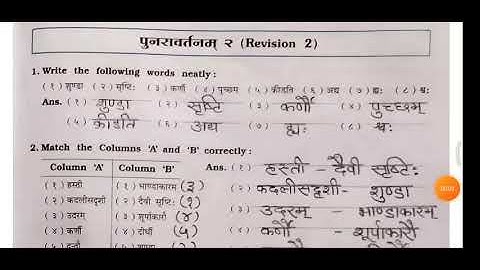 पुनरावर्तनम् २ (Revision 2)
1. Write the following words neatly :
(१) शुण्डा (२) सृष्टिः (३) कर्णौ (४) पुच्छम् (५) क्रीडति (६) अद्य (७) ह्यः (८) श्वः
Ans. (१) शुण्डा (२) सृष्टि (३) कर्णौ (४) पुच्छम्
(५) क्रीडति (६) अद्य (७) ह्यः (८) श्वः
2. Match the Columns 'A' and 'B' correctly :
Column 'A' Column 'B' Ans. (१) हस्ती - दैवी सृष्टिः
(१) हस्ती (१) भाण्डाकारम् (३) (२) कदलीसदृशी - शुण्डा
(२) कदलीसदृशी (२) दैवी सृष्टिः (१) (३) उदरम् - भाण्डाकारम्
(३) उदरम् (३) शूर्पाकारौ (४) (४) कर्णौ - शूर्पाकारौ
(४) कर्णौ (४) दीर्घौ (५)